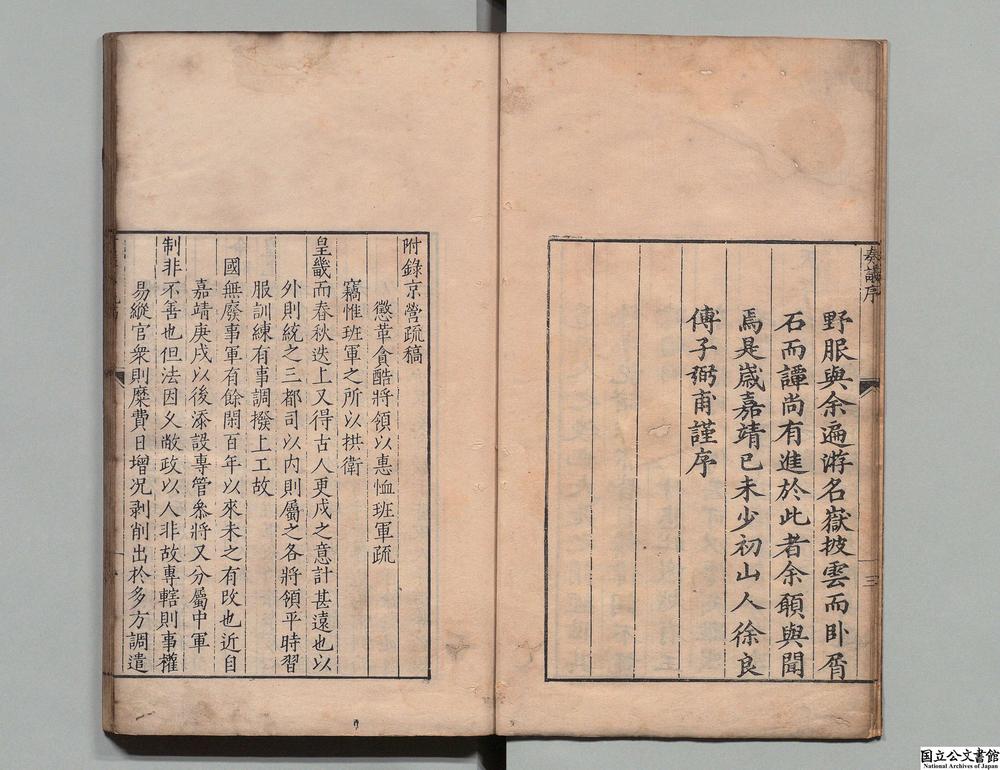 奏議序
三
野服與余遍游名嶽披雲而卧胥
石而譚尚有進於此者余願與聞
焉是歲嘉靖已未少初山人徐良
傅子弼甫謹序
附錄京營疏稿
懲革貪酷將領以惠恤班軍疏
竊惟班軍之所以拱衛
皇畿而春秋迭上又得古人更戍之意計甚遠也以
外則統之三都司以内則屬之各將領平時習
服訓練有事調撥上工故
國無廢事軍有餘閑百年以來未之有改也近自
嘉靖庚戌以後添設專管叅將又分屬中軍
制非不善也但法因乆敝政以人非故專轄則事權
易縱官衆則糜費日增况剥削出於多方調遣
国立公文書館
National Archives of Japan